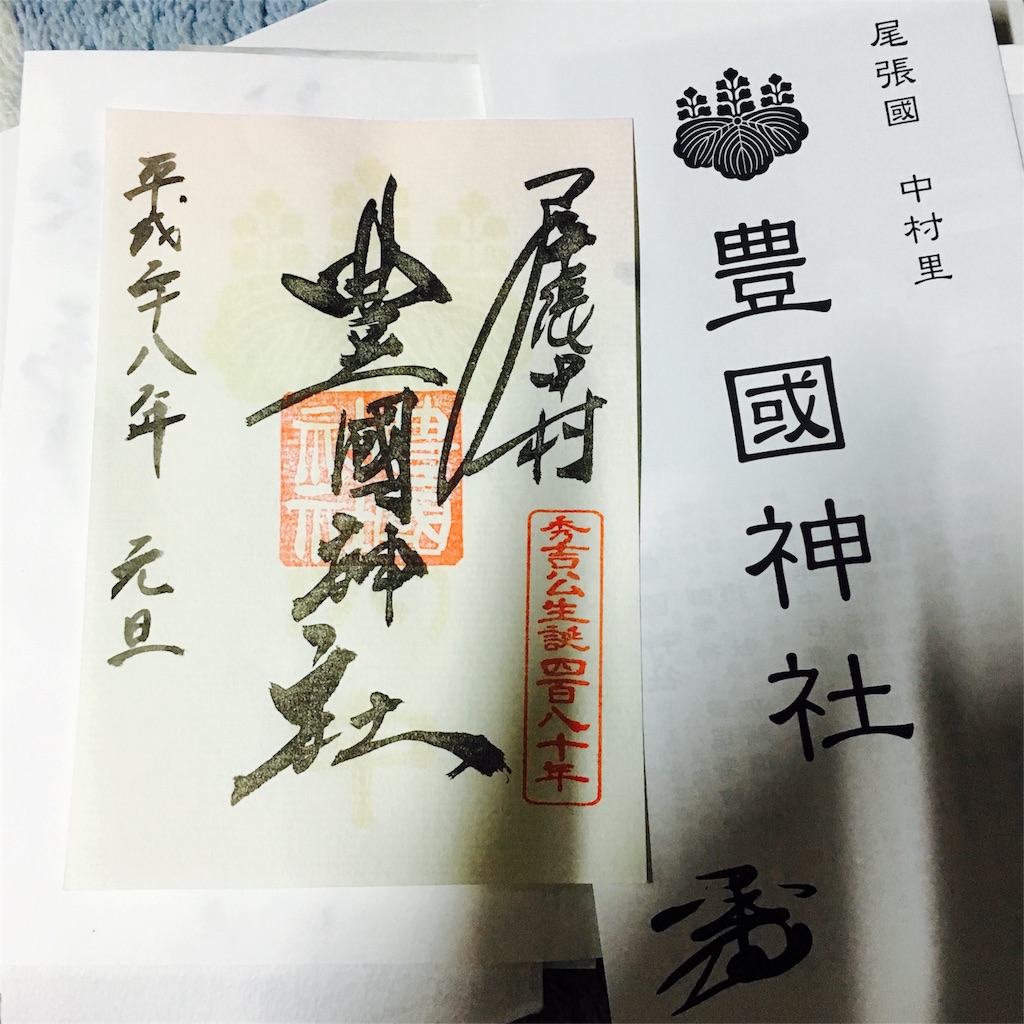 尾張國 中村里
豊國神社
尾張中村
秀吉公生誕四百八十年
豊國神社
平成二十八年 元旦